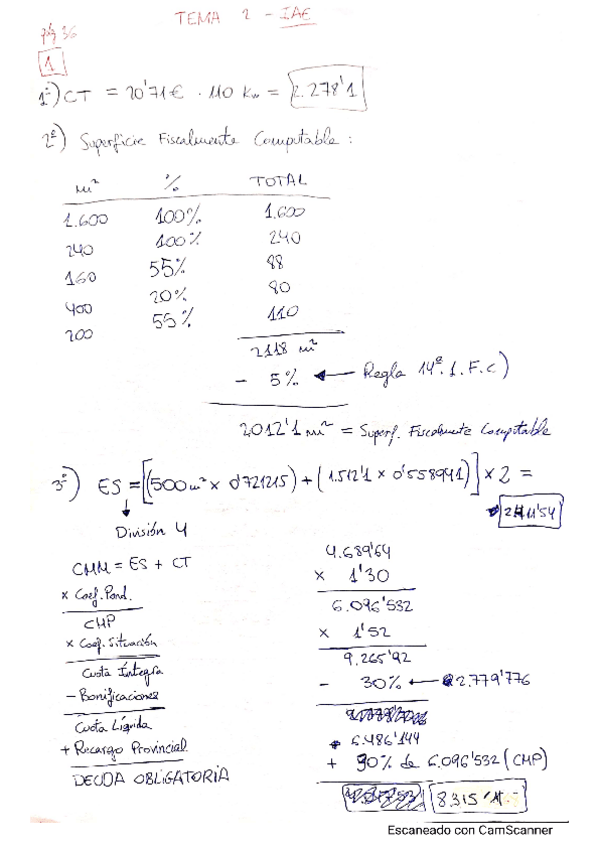 TEMA 2 - IAE
pág 36
1
1º) CT = 20'71€ · 110 Kw = 2.278'1
2º) Superficie Fiscalmente Computable :
m² % TOTAL
1.600 100% 1.600
240 100% 240
160 55% 88
400 20% 80
200 55% 110
2118 m²
- 5% ← Regla 14ª.1.F.c)
2012'1 m² = Superf. Fiscalmente Computable
3º) ES = [(500m² x 0'721215) + (1.512'1 x 0'558941)] x 2 =
2411'54
División 4
CMM = ES + CT
x Coef. Pond.
CMP
x Coef. Situación
Cuota Íntegra
- Bonificaciones
Cuota Líquida
+ Recargo Provincial
DEUDA OBLIGATORIA
4.689'64
x 1'30
6.096'532
x 1'52
9.265'92
- 30% ← 2.779'776
6.486'144
+ 30% de 6.096'532 (CMP)
8.315'11
Escaneado con CamScanner